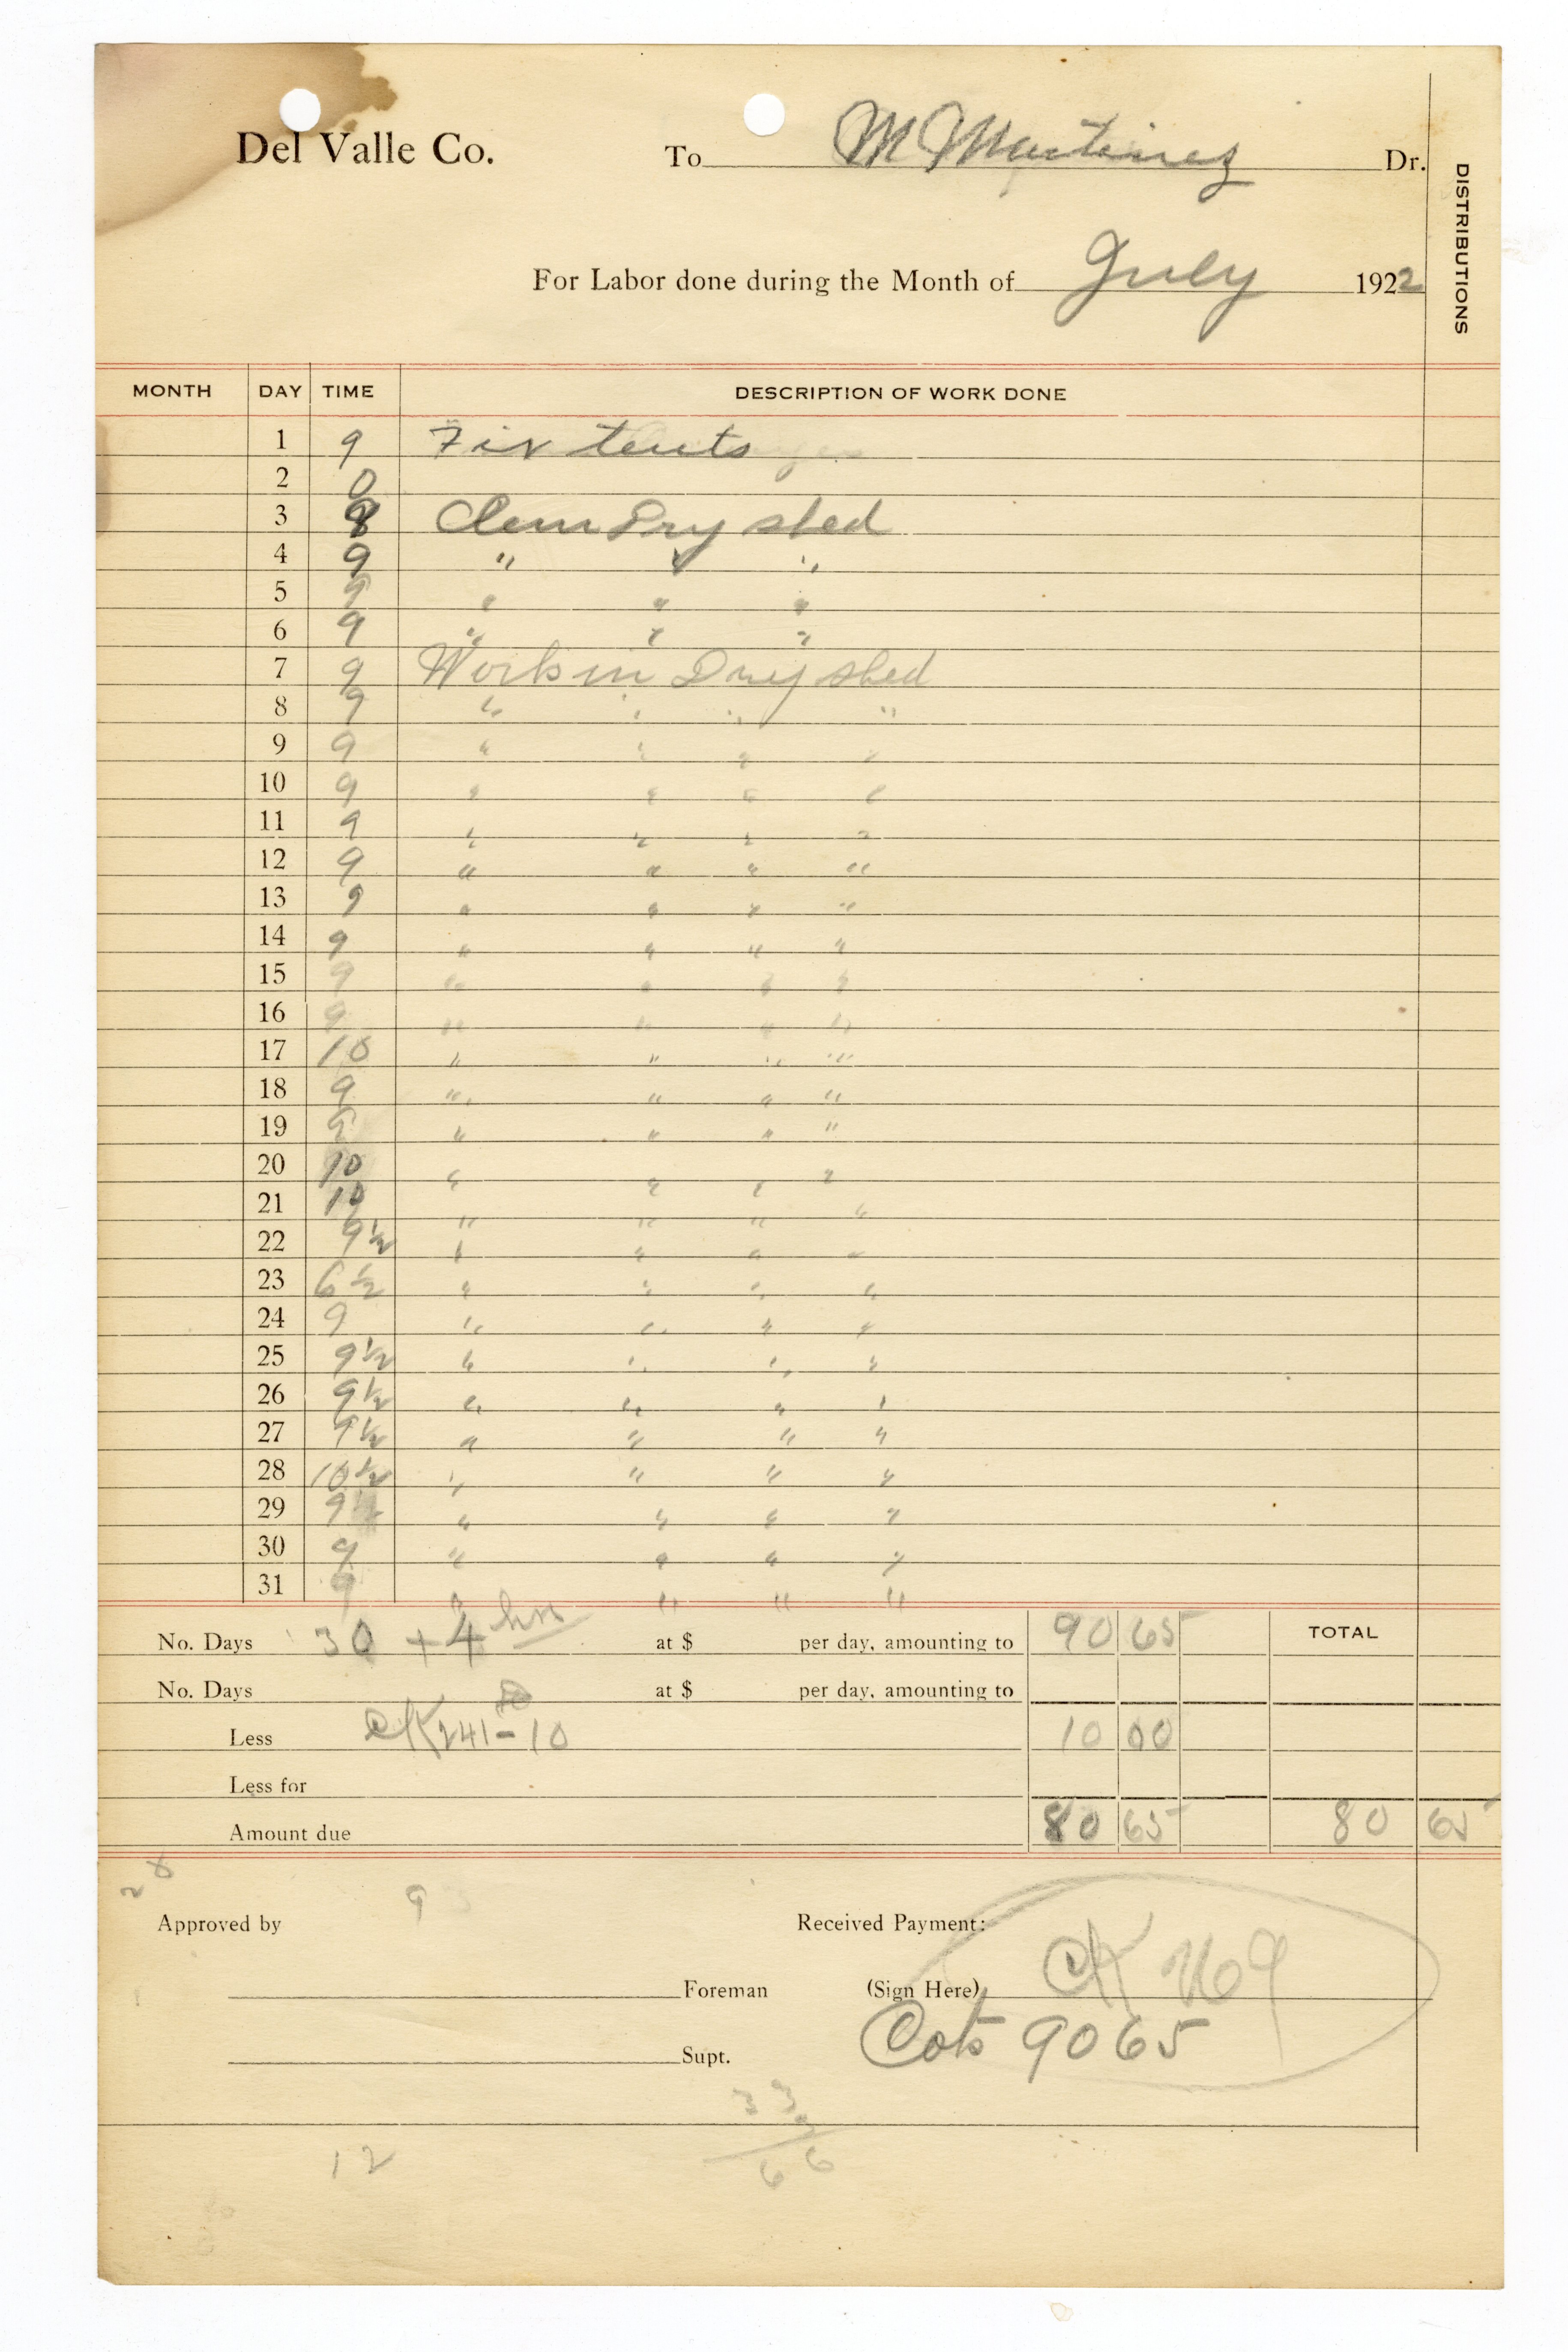 Del Valle Co. To M Martinez Dr.
DISTRIBUTIONS
For Labor done during the Month of July 1922
MONTH DAY TIME DESCRIPTION OF WORK DONE
1 9 Fix tents
2 0
3 8 Clean Dry shed
4 9 " " "
5 9 " " "
6 9 " " "
7 9 Work in Dry shed
8 9 " " " "
9 9 " " " "
10 9 " " " "
11 9 " " " "
12 9 " " " "
13 9 " " " "
14 9 " " " "
15 9 " " " "
16 9 " " " "
17 10 " " " "
18 9 " " " "
19 9 " " " "
20 10 " " " "
21 10 " " " "
22 9½ " " " "
23 6½ " " " "
24 9 " " " "
25 9½ " " " "
26 9½ " " " "
27 9½ " " " "
28 10½ " " " "
29 9½ " " " "
30 9 " " " "
31 9 " " " "
No. Days 30 + 4 hrs at $ per day, amounting to 90 65 TOTAL
No. Days at $ per day, amounting to
Less CK 241 - 10 10 00
Less for
Amount due 80 65 80 65
28
9
Approved by Received Payment:
Foreman (Sign Here) CK
Cots 9065
Supt.
33
66
12